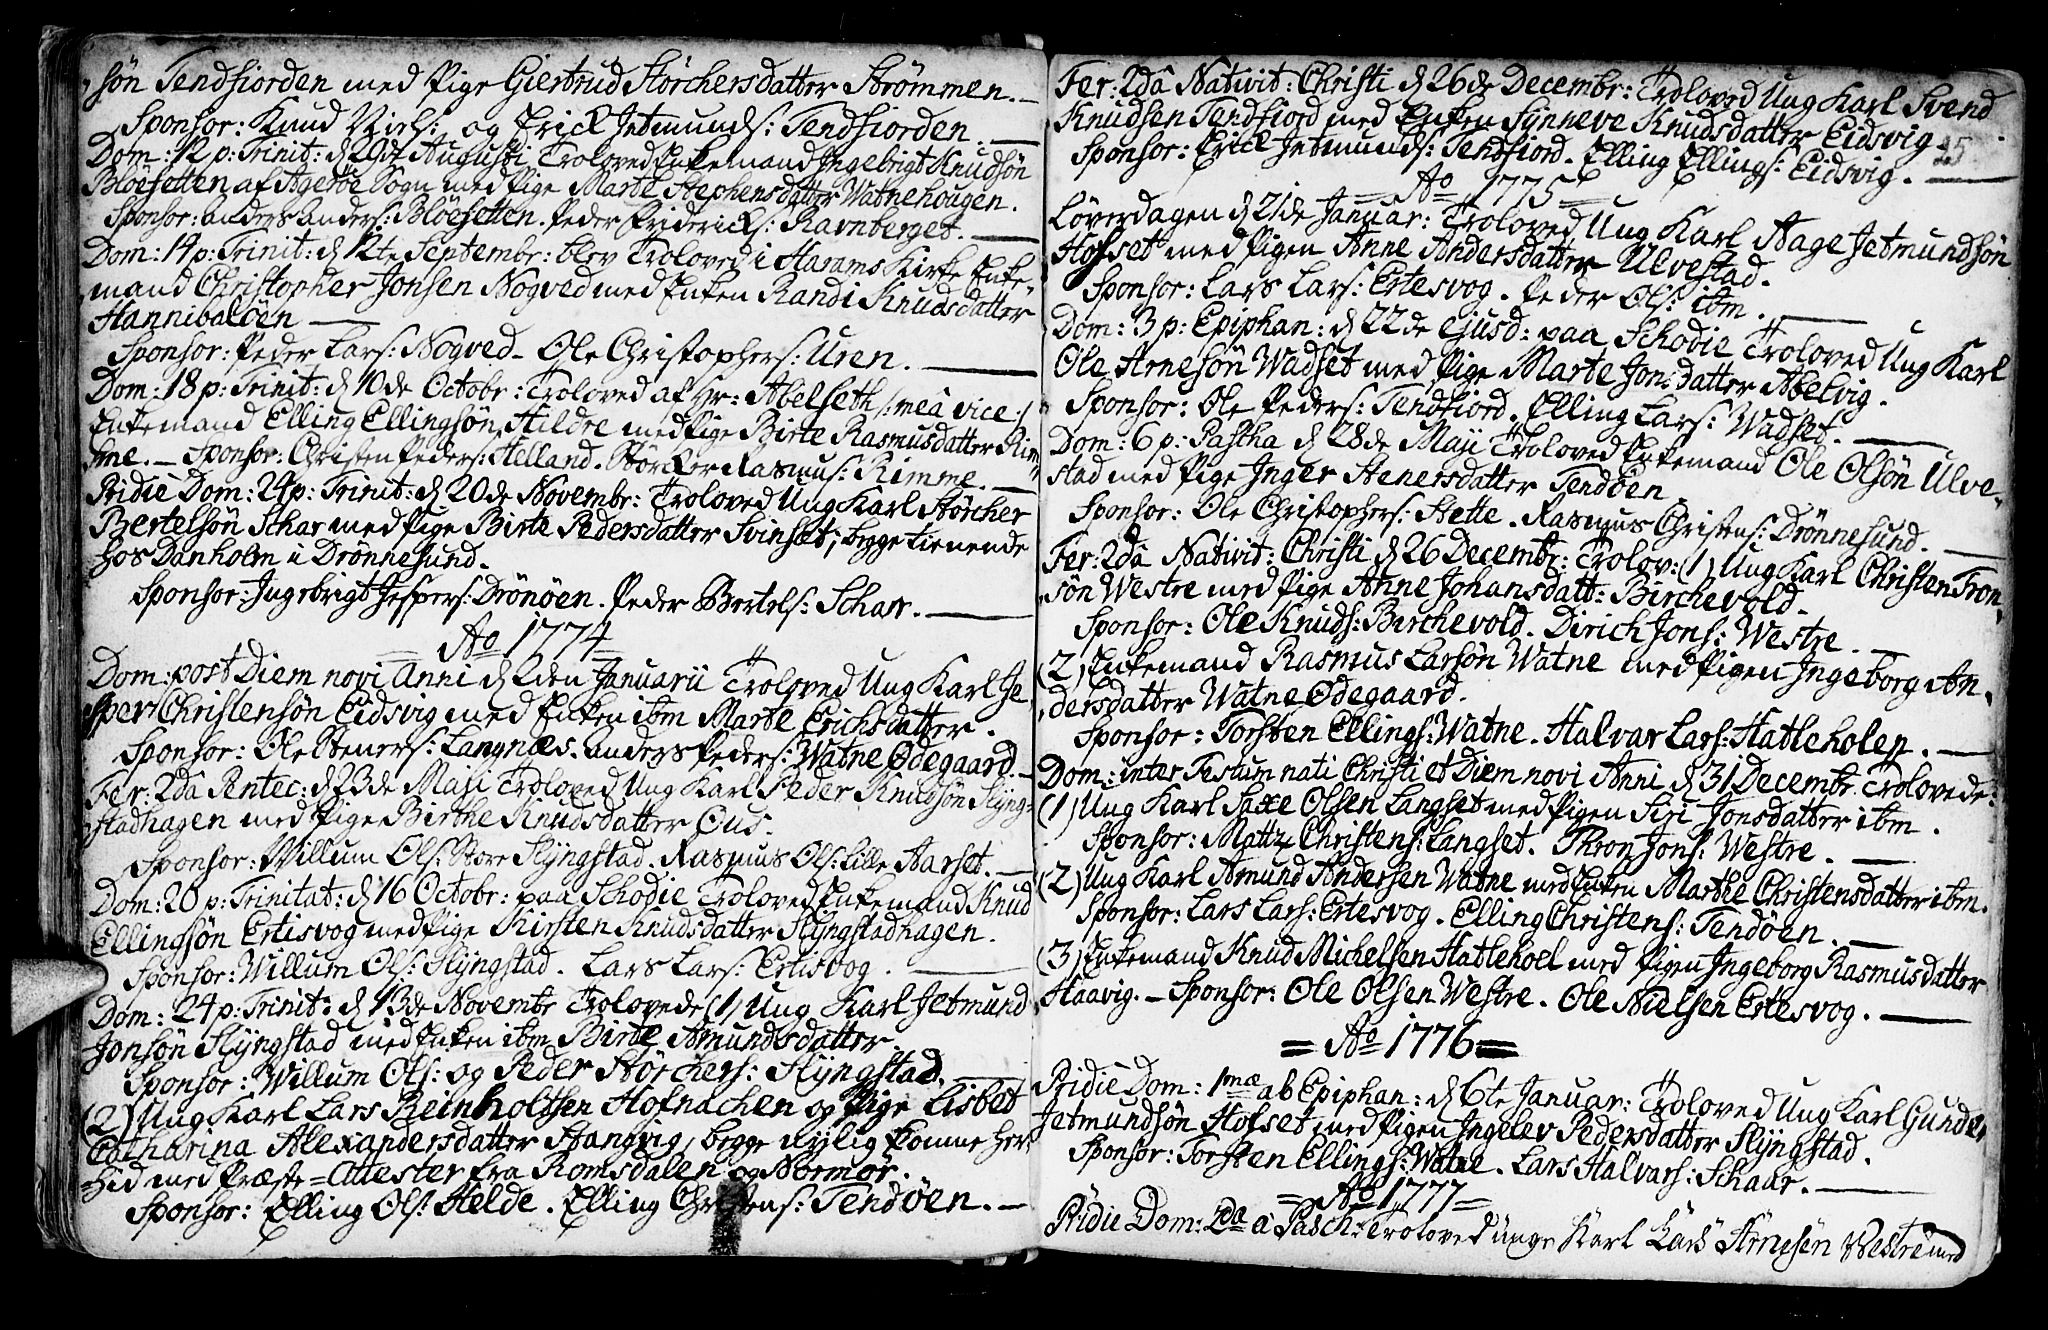 søn Tendfiorden med Pige Giertrud Størchersdatter Strømmen. —
Sponsor: Knud Niels: og Erick Jetmunds: Tendfiorden. —
Dom: 12 p: Trinit: d 29de Augusti Troloved Enkemand Ingebrigt Knudsøn
Bløesetten af Agerøe Sogn med Pige Marte Stephensdatter Watnehougen.
Sponsor: Anders Anders: Bløesetten. Peder Friderichs: Ravnberget. —
Dom: 14 p: Trinit: d 12te Septembr: blev Troloved i Harams Kirke Enke-
mand Christopher Jonsen Nogved med Enken Randi Knudsdatter
Hannibaløen —
Sponsor: Peder Lars: Nogved. Ole Christophers: Uren. —
Dom: 18 p: Trinit: d 10de Octobr: Troloved af Hr: Abelseth /: meâ vice :/
Enkemand Elling Ellingsøn Hildre med Pige Birte Rasmusdatter Rim-
me. — Sponsor: Christen Peders: Helland. Størcker Rasmus: Rimme. —
Pridie Dom: 24 p: Trinit: d 20de Novembr: Troloved Ung Karl Størcher
Bertelsøn Schar med Pige Birte Pedersdatter Svinset; begge tienende
hos Danholm i Drønnesund.
Sponsor: Ingebrigt Jespers: Drönöen. Peder Bertels: Schar. —
= Ao 1774 =
Dom: post Diem novi Anni d 2den Januarii Troloved Ung Karl Je-
sper Christensøn Eidsvig med Enken ibm Marte Erichsdatter.
Sponsor: Ole Steners: Langnæs. Anders Peders: Watne Ødegaard. —
Fer: 2da Pentec: d 23de Maji Troloved Ung Karl Peder Knudsøn Slyng-
stadhagen med Pige Birthe Knudsdatter Ous.
Sponsor: Willum Ols: Store Slyngstad. Rasmus Ols: Lille Aarset. —
Dom: 20 p: Trinitat: d 16 Octobr: paa Schodie Troloved Enkemand Knud
Ellingsøn Ertisvog med Pige Kirsten Knudsdatter Slyngstadhagen.
Sponsor: Willum Ols: Slyngstad. Lars Lars: Ertisvog. —
Dom: 24 p: Trinit: d 13de Novembr Trolovede (1) Ung Karl Jetmund
Jonsøn Slyngstad med Enken ibm Birte Amundsdatter.
Sponsor: Willum Ols: og Peder Størchers: Slyngstad. —
(2) Ung Karl Lars Reinholtsen Hofnachen og Pige Lisbet
Catharina Alexandersdatter Stangvig, begge nylig komne her-
hid med Præste=Attester fra Romsdalen og Normør.
Sponsor: Elling Ols: Helde. Elling Christens: Tendøen. —
Fer: 2dâ Nativit: Christi d 26de Decembr: Troloved Ung Karl Svend
Knudsen Tendfiord med Enken Synneve Knudsdatter Eidsvig.
Sponsor: Erick Jetmunds: Tendfiord. Elling Ellings: Eidsvig. —
25
= Ao 1775 =
Løverdagen d 21de Januar: Troloved Ung Karl Aage Jetmundsøn
Hofset med Pigen Anne Andersdatter Ulvestad.
Sponsor: Lars Lars: Ertesvog. Peder Ols: ibm. —
Dom: 3 p: Epiphan: d 22de ejusd: paa Schodie Troloved Ung Karl
Ole Arnesøn Wadset med Pige Marte Jonsdatter Abelvig.
Sponsor: Ole Peders: Tendfiord. Elling Lars: Wadset. —
Dom: 6 p: Pascha d 28de Maji Troloved Enkemand Ole Olsøn Ulve-
stad med Pige Inger Stenersdatter Tendøen.
Sponsor: Ole Christophers: Stette. Rasmus Christens: Drønnesund. —
Fer: 2dâ Nativit: Christi d 26 Decembr: Trolov: (1) Ung Karl Christen Tron-
søn Westre med Pige Anne Johansdatt: Birchevold.
Sponsor: Ole Knuds: Birchevold. Dirich Jons: Westre. —
(2) Enkemand Rasmus Larsøn Watne med Pigen Ingeborg An-
dersdatter Watne Ødegaard.
Sponsor: Torsten Ellings: Watne. Halvar Lars: Hatleholen. —
Dom: inter Festum nati Christi et Diem novi Anni d 31 Decembr Trolovede:
(1) Ung Karl Saxe Olsen Langset med Pigen Siri Jonsdatter ibm.
Sponsor: Mattz Christens: Langset. Thron Jons: Westre. —
(2) Ung Karl Amund Andersen Watne med Enken Marthe Christensdatter ibm.
Sponsor: Lars Lars: Ertesvog. Elling Christens: Tendøen. —
(3) Enkemand Knud Michelsen Hatlehoel med Pigen Ingeborg Rasmusdatter
Haavig. — Sponsor: Ole Olsen Westre. Ole Nielsen Ertesvog. —
= Ao 1776 =
Pridie Dom: 1mæ ab Epiphan: d 6te Januar: Troloved Ung Karl Gunder
Jetmundsøn Hofset med Pigen Ingelev Pedersdatter Slyngstad.
Sponsor: Torsten Ellings: Watne. Lars Halvars: Schaar. —
= Ao 1777 =
Pridie Dom: 2da a Pasch: Troloved unge Karl Lars Arnesen Westre med